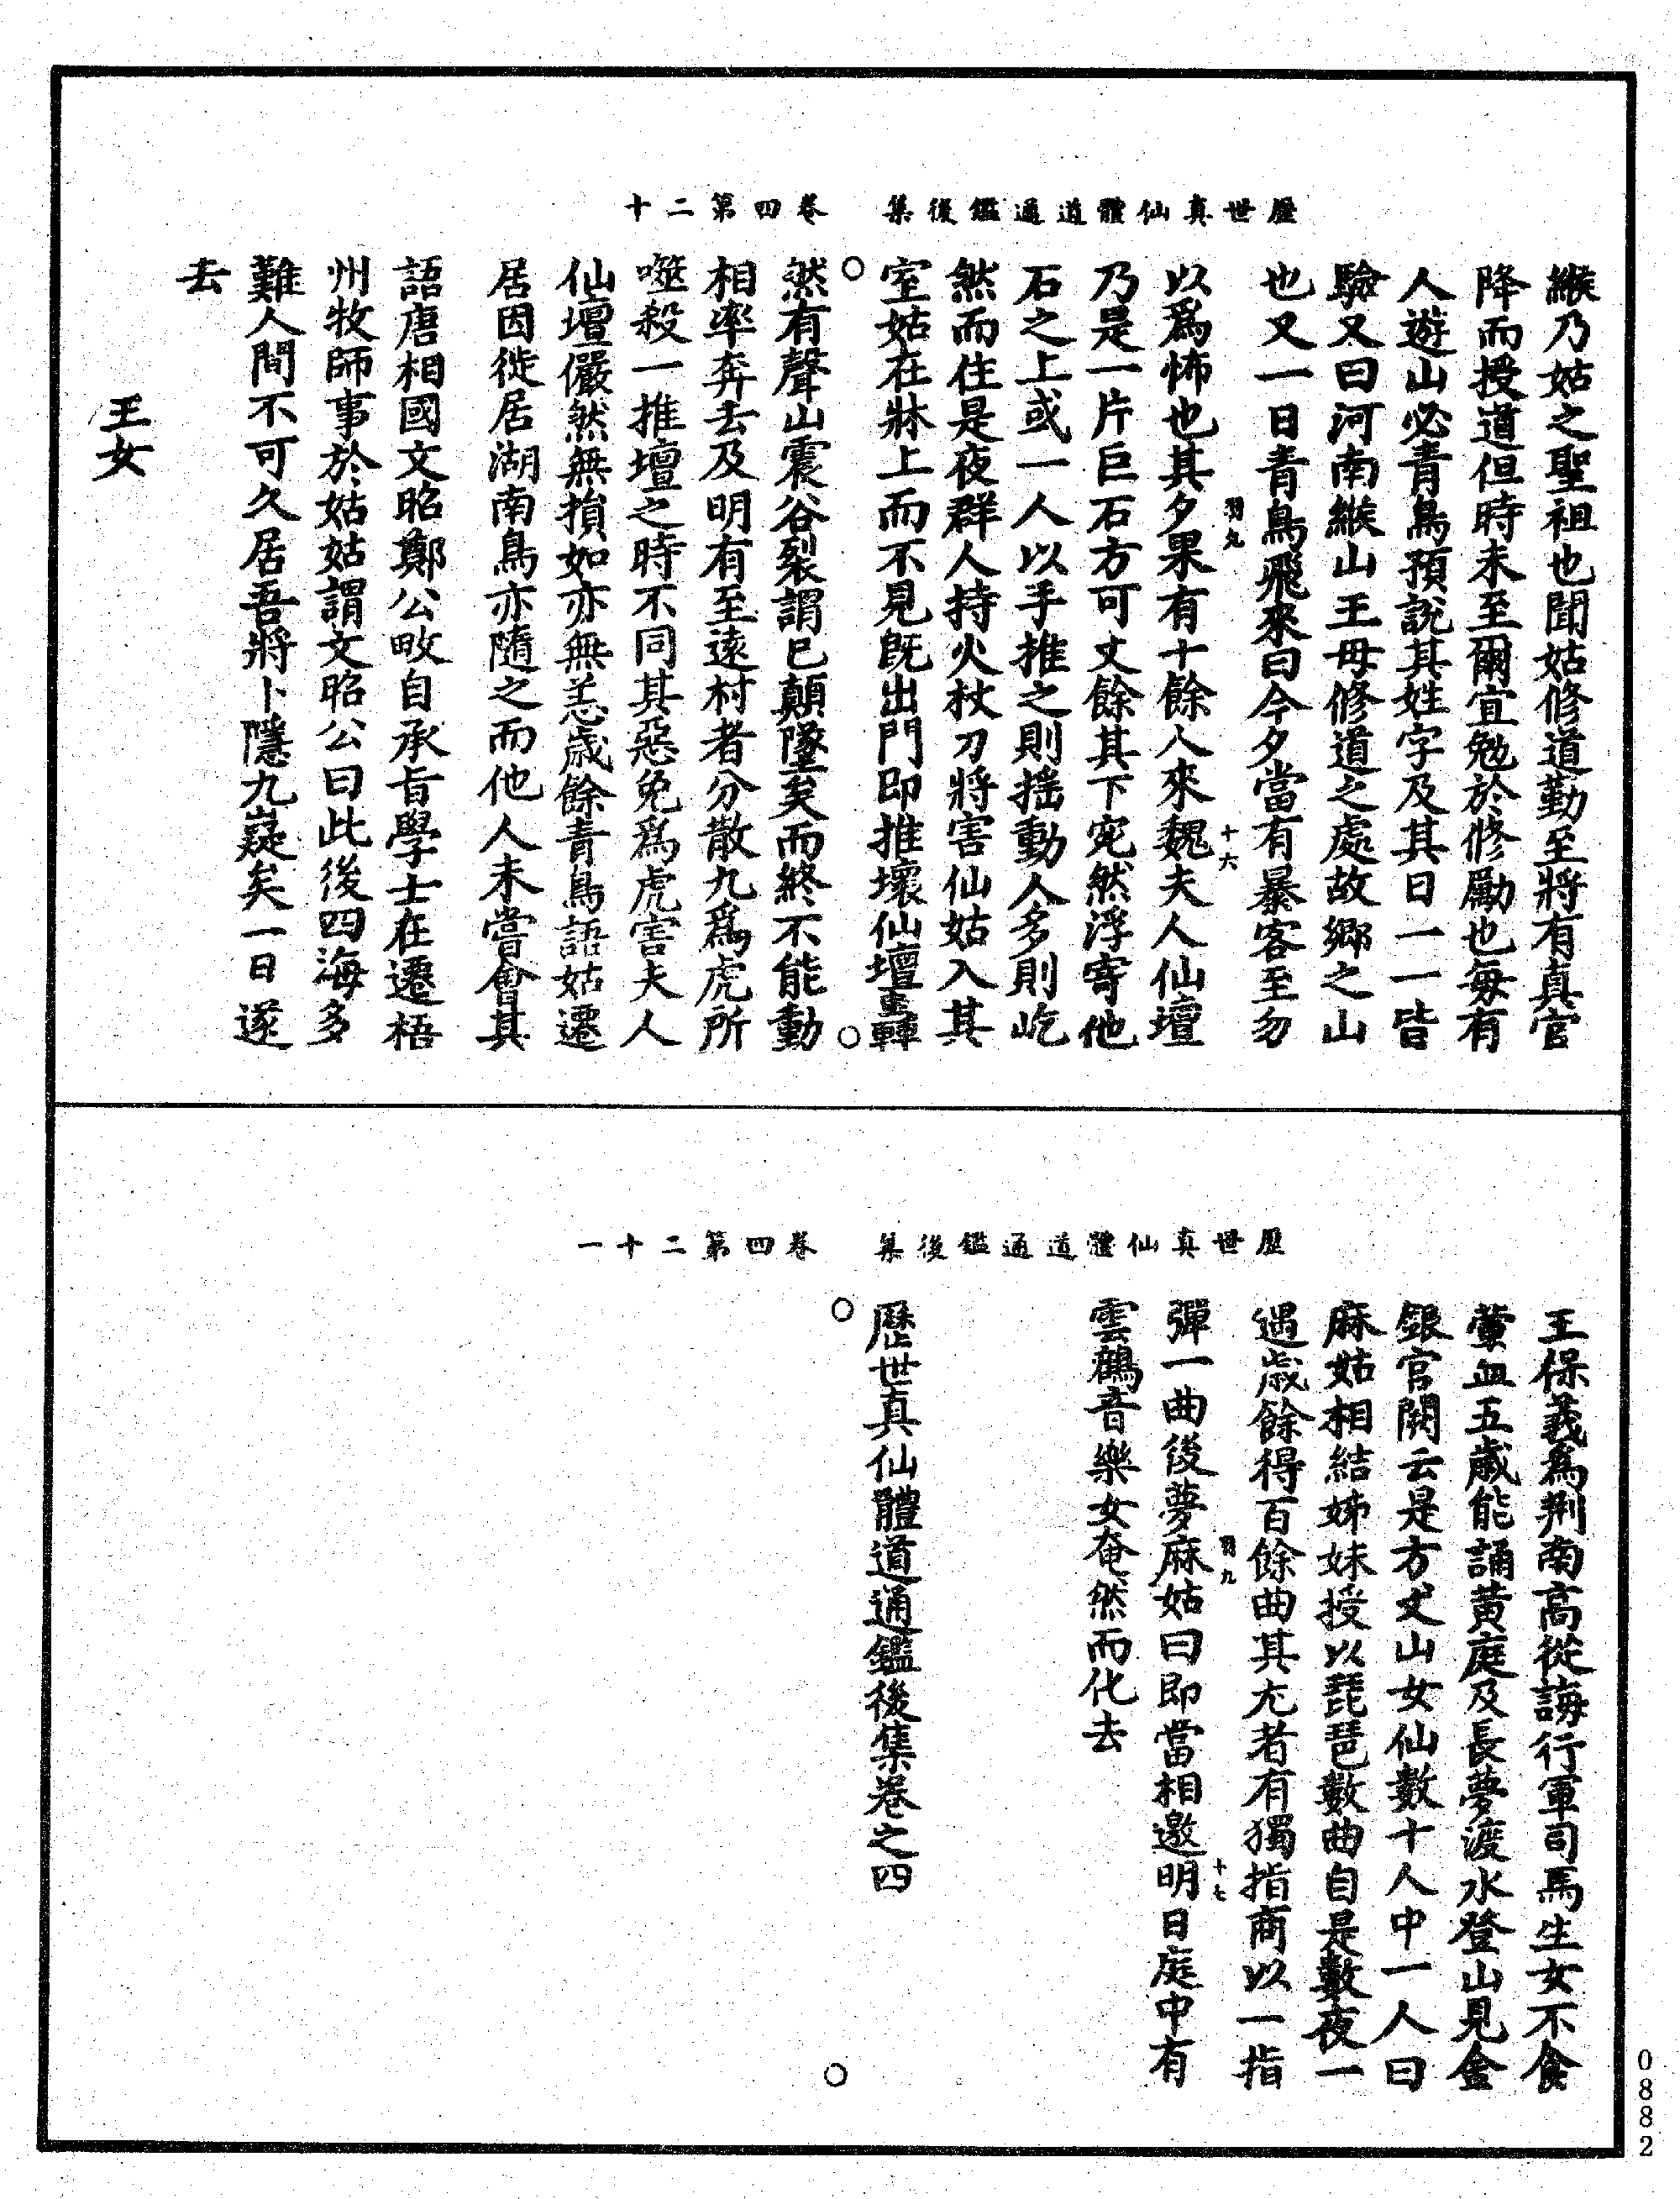 歷世真仙體道通鑑後集　卷四第二十
緱乃姑之聖祖也聞姑修道勤至將有真官
降而授道但時未至爾宜勉於修勵也每有
人遊山必青鳥預說其姓字及其日一一皆
驗又曰河南緱山王母修道之處故鄉之山
也又一日青鳥飛來曰今夕當有暴客至勿
羽九　十六
以爲怖也其夕果有十餘人來魏夫人仙壇
乃是一片巨石方可丈餘其下宛然浮寄他
石之上或一人以手推之則搖動人多則屹
然而住是夜群人持火杖刀將害仙姑入其
室姑在牀上而不見既出門即推壞仙壇轟
然有聲山震谷裂謂已顛墜矣而終不能動
相率奔去及明有至遠村者分散九爲虎所
噬殺一推壇之時不同其惡免爲虎害夫人
仙壇儼然無損如亦無恙歲餘青鳥語姑遷
居因徙居湖南鳥亦隨之而他人未嘗會其
語唐相國文昭鄭公畋自承旨學士在遷梧
州牧師事於姑姑謂文昭公曰此後四海多
難人間不可久居吾將卜隱九嶷矣一日遂
去
王女
歷世真仙體道通鑑後集　卷四第二十一
王保義爲荆南高從誨行軍司馬生女不食
葷血五歲能誦黃庭及長夢渡水登山見金
銀宫闕云是方丈山女仙數十人中一人曰
麻姑相結姊妹授以琵琶數曲自是數夜一
遇歲餘得百餘曲其尤者有獨指商以一指
羽九　十七
彈一曲後夢麻姑曰即當相邀明日庭中有
雲鶴音樂女奄然而化去
歷世真仙體道通鑑後集卷之四
0882